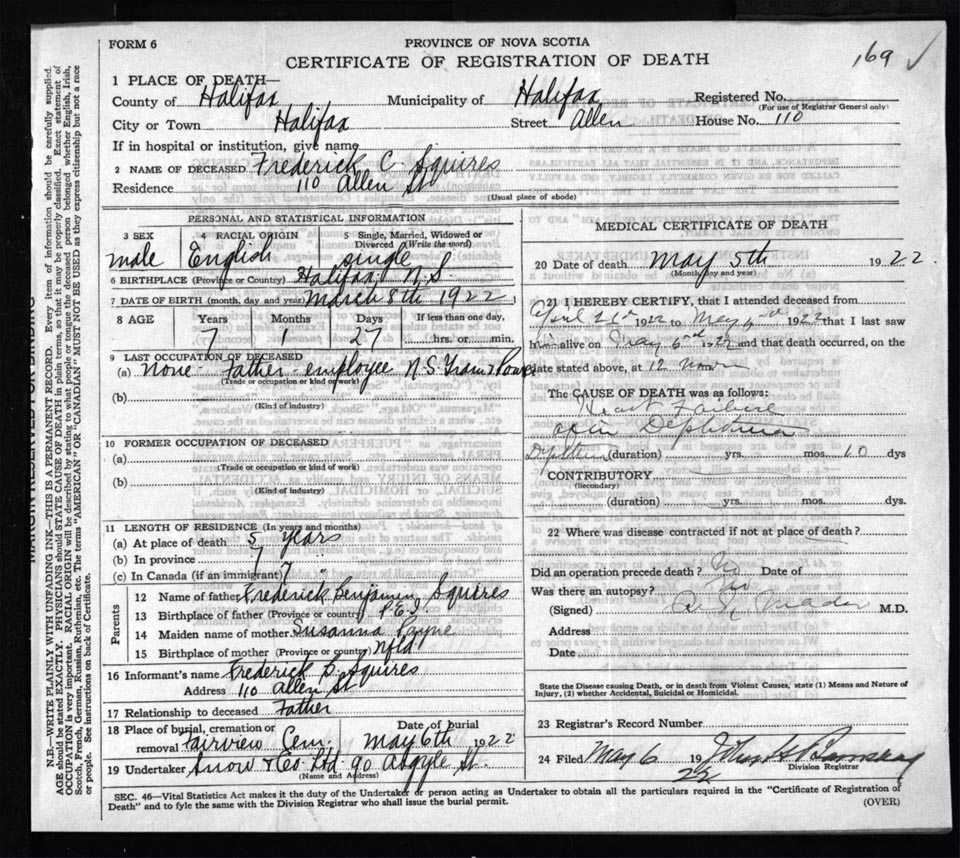 FORM 6
PROVINCE OF NOVA SCOTIA
CERTIFICATE OF REGISTRATION OF DEATH
169 ✓
1 PLACE OF DEATH—
County of Halifax Municipality of Halifax Registered No.
(For use of Registrar General only)
City or Town Halifax Street Allen House No. 110
If in hospital or institution, give name
2 NAME OF DECEASED Frederick C. Squires
Residence 110 Allen St
(Usual place of abode)
PERSONAL AND STATISTICAL INFORMATION
3 SEX male
4 RACIAL ORIGIN English
5 Single, Married, Widowed or Divorced (Write the word) single
6 BIRTHPLACE (Province or Country) Halifax N.S.
7 DATE OF BIRTH (month, day and year) March 8th 1922
8 AGE Years Months Days If less than one day,
7 1 27 hrs. or min.
9 LAST OCCUPATION OF DECEASED
(a) none - Father - employee N.S. Tram & Power
(Trade or occupation or kind of work)
(b)
(Kind of industry)
10 FORMER OCCUPATION OF DECEASED
(a)
(Trade or occupation or kind of work)
(b)
(Kind of industry)
11 LENGTH OF RESIDENCE (In years and months)
(a) At place of death 5 years
(b) In province 7 "
(c) In Canada (if an immigrant) 7 "
Parents
12 Name of father Frederick Benjamin Squires
13 Birthplace of father (Province or country) P.E.I.
14 Maiden name of mother Susanna Payne
15 Birthplace of mother (Province or country) Nfld.
16 Informant's name Frederick B. Squires
Address 110 Allen St
17 Relationship to deceased Father
18 Place of burial, cremation or removal Fairview Cem. Date of burial May 6th 1922
19 Undertaker Snow & Co. Ltd 90 Argyle St.
(Name and Address)
MEDICAL CERTIFICATE OF DEATH
20 Date of death May 5th 1922.
(Month, day and year)
21 I HEREBY CERTIFY, that I attended deceased from
April 1922 to May 1922 that I last saw
him alive on May 1922 and that death occurred, on the
date stated above, at 12 Noon
The CAUSE OF DEATH was as follows:
Heart Failure
after Diphtheria
(duration) yrs. mos. 10 dys
CONTRIBUTORY
(Secondary)
(duration) yrs. mos. dys.
22 Where was disease contracted if not at place of death?
Did an operation precede death? No Date of
Was there an autopsy? No
(Signed) Mader M.D.
Address
Date
State the Disease causing Death, or in death from Violent Causes, state (1) Means and Nature of Injury, (2) whether Accidental, Suicidal or Homicidal.
23 Registrar's Record Number
24 Filed May 6 1922
Division Registrar
SEC. 46—Vital Statistics Act makes it the duty of the Undertaker or person acting as Undertaker to obtain all the particulars required in the "Certificate of Registration of
Death" and to fyle the same with the Division Registrar who shall issue the burial permit.
(OVER)
MARGIN RESERVED FOR BINDING
N.B.—WRITE PLAINLY WITH UNFADING INK—THIS IS A PERMANENT RECORD. Every item of information should be carefully supplied.
AGE should be stated EXACTLY. PHYSICIANS should STATE CAUSE OF DEATH in plain terms, so that it may be properly classified. Exact statement of
OCCUPATION is very important. RACIAL ORIGIN will be described by stating to what people or tongue the deceased person belonged whether English, Irish,
Scotch, French, German, Russian, Ruthenian, etc. The terms "AMERICAN" OR "CANADIAN" MUST NOT BE USED as they express citizenship but not a race
or people. See instructions on back of Certificate.